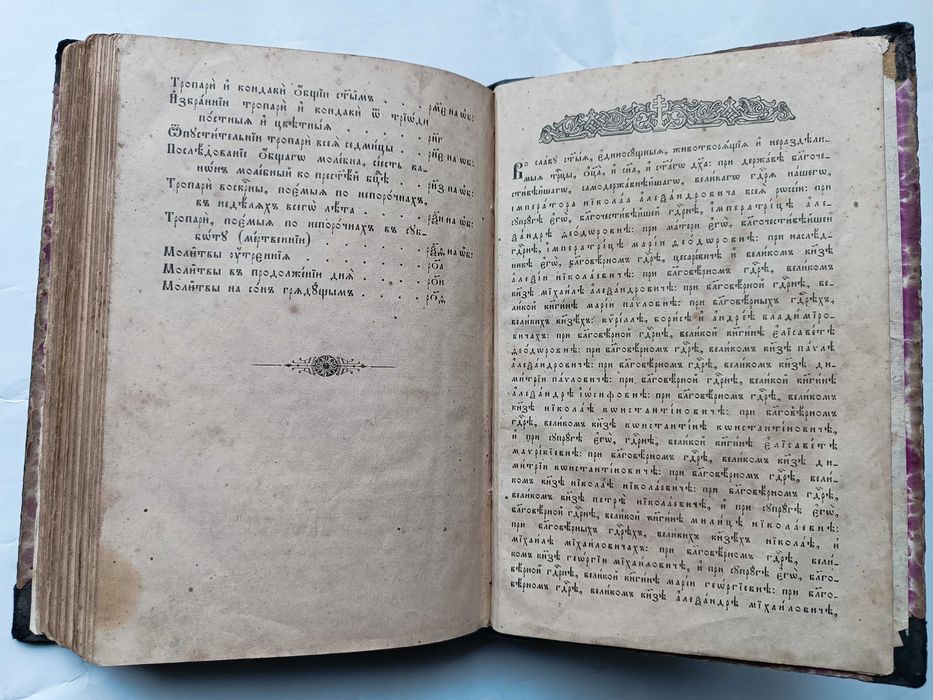 Тропари̑ и҆ кондаки̑ ѻ҆́бщїи ст҃ы̑мъ . . . рм҃е на ѡ҆б:
И҆збра́ннїи тропари̑ и҆ кондаки̑ ѿ трїѡ́ди
по́стныѧ и҆ цвѣ́тныѧ
Ѿпусти́тельнїи тропари̑ всеѧ̀ седми́цы
Послѣ́дованїе ѻ҆́бщагѡ моле́бна, си́есть ка-
нѡ́нъ моле́бный ко прест҃ѣ́й бц҃ѣ
Тропари̑ воскрⷭ҇ны, пое́мыѧ по непоро́чнахъ,
въ недѣ́лѧхъ всегѡ̀ лѣ́та
Тропари̑, пое́мыѧ по непоро́чнахъ въ суб-
бѡ́ту (ме́ртвеннїи)
Мѡли̑твы ѹ҆́треннїѧ
Мѡли̑твы въ продолже́нїи днѧ̀
Мѡли̑твы на со́нъ грѧдꙋ́щымъ
Во сла́вꙋ ст҃ы́ѧ, є҆диносꙋ́щныѧ, животворѧ́щїѧ и҆ нераздѣ́ли-
мыѧ трⷪ҇цы, ѻ҆ц҃а̀, и҆ сн҃а, и҆ ст҃а́гѡ дх҃а: при держа́вѣ бл҃гоче-
сти́вѣйшагѡ, самодержа́внѣйшагѡ, вели́кагѡ гдⷭ҇рѧ на́шегѡ,
і҆мпера́тора нїкола́а а҆леѯа́ндровича всеѧ̀ рѡссі́и: при
сꙋпрꙋ́гѣ є҆гѡ̀, бл҃гочести́вѣйшей гдⷭ҇рнѣ, і҆мператри́цѣ а҆ле-
ѯа́ндрѣ ѳео́дѡровнѣ: при ма́тери є҆гѡ̀, бл҃гочести́вѣйшей
гдⷭ҇рнѣ, і҆мператри́цѣ марі́и ѳео́дѡровнѣ: при наслѣ́д-
никѣ є҆гѡ̀, бл҃говѣ́рномъ гдⷭ҇рѣ, цесаре́вичѣ и҆ вели́комъ кнѧ́зѣ
а҆леѯі́и нїкола́евичѣ: при бл҃говѣ́рномъ гдⷭ҇рѣ, вели́комъ
кнѧ́зѣ мїхаи́лѣ а҆леѯа́ндровичѣ: при бл҃говѣ́рной гдⷭ҇рнѣ, ве-
ли́кой кнѧги́нѣ марі́и па́ѵловнѣ: при бл҃говѣ́рныхъ гдⷭ҇рѣхъ,
вели́кихъ кнѧ́зехъ: кѷрі́ллѣ, бори́сѣ и҆ а҆ндре́ѣ влади́мїро-
вичахъ: при бл҃говѣ́рной гдⷭ҇рнѣ, вели́кой кнѧги́нѣ є҆лїсаве́тѣ
ѳео́дѡровнѣ: при бл҃говѣ́рномъ гдⷭ҇рѣ, вели́комъ кнѧ́зѣ па́ѵлѣ
а҆леѯа́ндровичѣ: при бл҃говѣ́рномъ гдⷭ҇рѣ, вели́комъ кнѧ́зѣ ди-
ми́трїи па́ѵловичѣ: при бл҃говѣ́рной гдⷭ҇рнѣ, вели́кой кнѧги́нѣ
а҆леѯа́ндрѣ і҆ѡ́сифовнѣ: при бл҃говѣ́рномъ гдⷭ҇рѣ, вели́комъ
кнѧ́зѣ нїкола́ѣ кѡнстанті́новичѣ: при бл҃говѣ́рномъ
гдⷭ҇рѣ, вели́комъ кнѧ́зѣ кѡнстанті́нѣ кѡнстанті́новичѣ,
и҆ при сꙋпрꙋ́гѣ є҆гѡ̀, гдⷭ҇рнѣ, вели́кой кнѧги́нѣ є҆лїсаве́тѣ
маѵрі́кїевнѣ: при бл҃говѣ́рномъ гдⷭ҇рѣ, вели́комъ кнѧ́зѣ ди-
ми́трїи кѡнстанті́новичѣ: при бл҃говѣ́рномъ гдⷭ҇рѣ, вели́-
комъ кнѧ́зѣ нїкола́ѣ нїкола́евичѣ: при бл҃говѣ́рномъ гдⷭ҇рѣ,
вели́комъ кнѧ́зѣ петрѣ̀ нїкола́евичѣ, и҆ при сꙋпрꙋ́гѣ є҆гѡ̀,
бл҃говѣ́рной гдⷭ҇рнѣ, вели́кой кнѧги́нѣ ми́лицѣ нїкола́евнѣ:
при бл҃говѣ́рныхъ гдⷭ҇рѣхъ, вели́кихъ кнѧ́зехъ нїкола́ѣ, и҆
мїхаи́лѣ мїха́йловичахъ: при бл҃говѣ́рномъ гдⷭ҇рѣ, вели́-
комъ кнѧ́зѣ геѡ́ргїи мїха́йловичѣ, и҆ при сꙋпрꙋ́гѣ є҆гѡ̀, бл҃го-
вѣ́рной гдⷭ҇рнѣ, вели́кой кнѧги́нѣ марі́и геѡ́ргїевнѣ: при бл҃го-
вѣ́рномъ гдⷭ҇рѣ, вели́комъ кнѧ́зѣ а҆леѯа́ндрѣ мїха́йловичѣ,